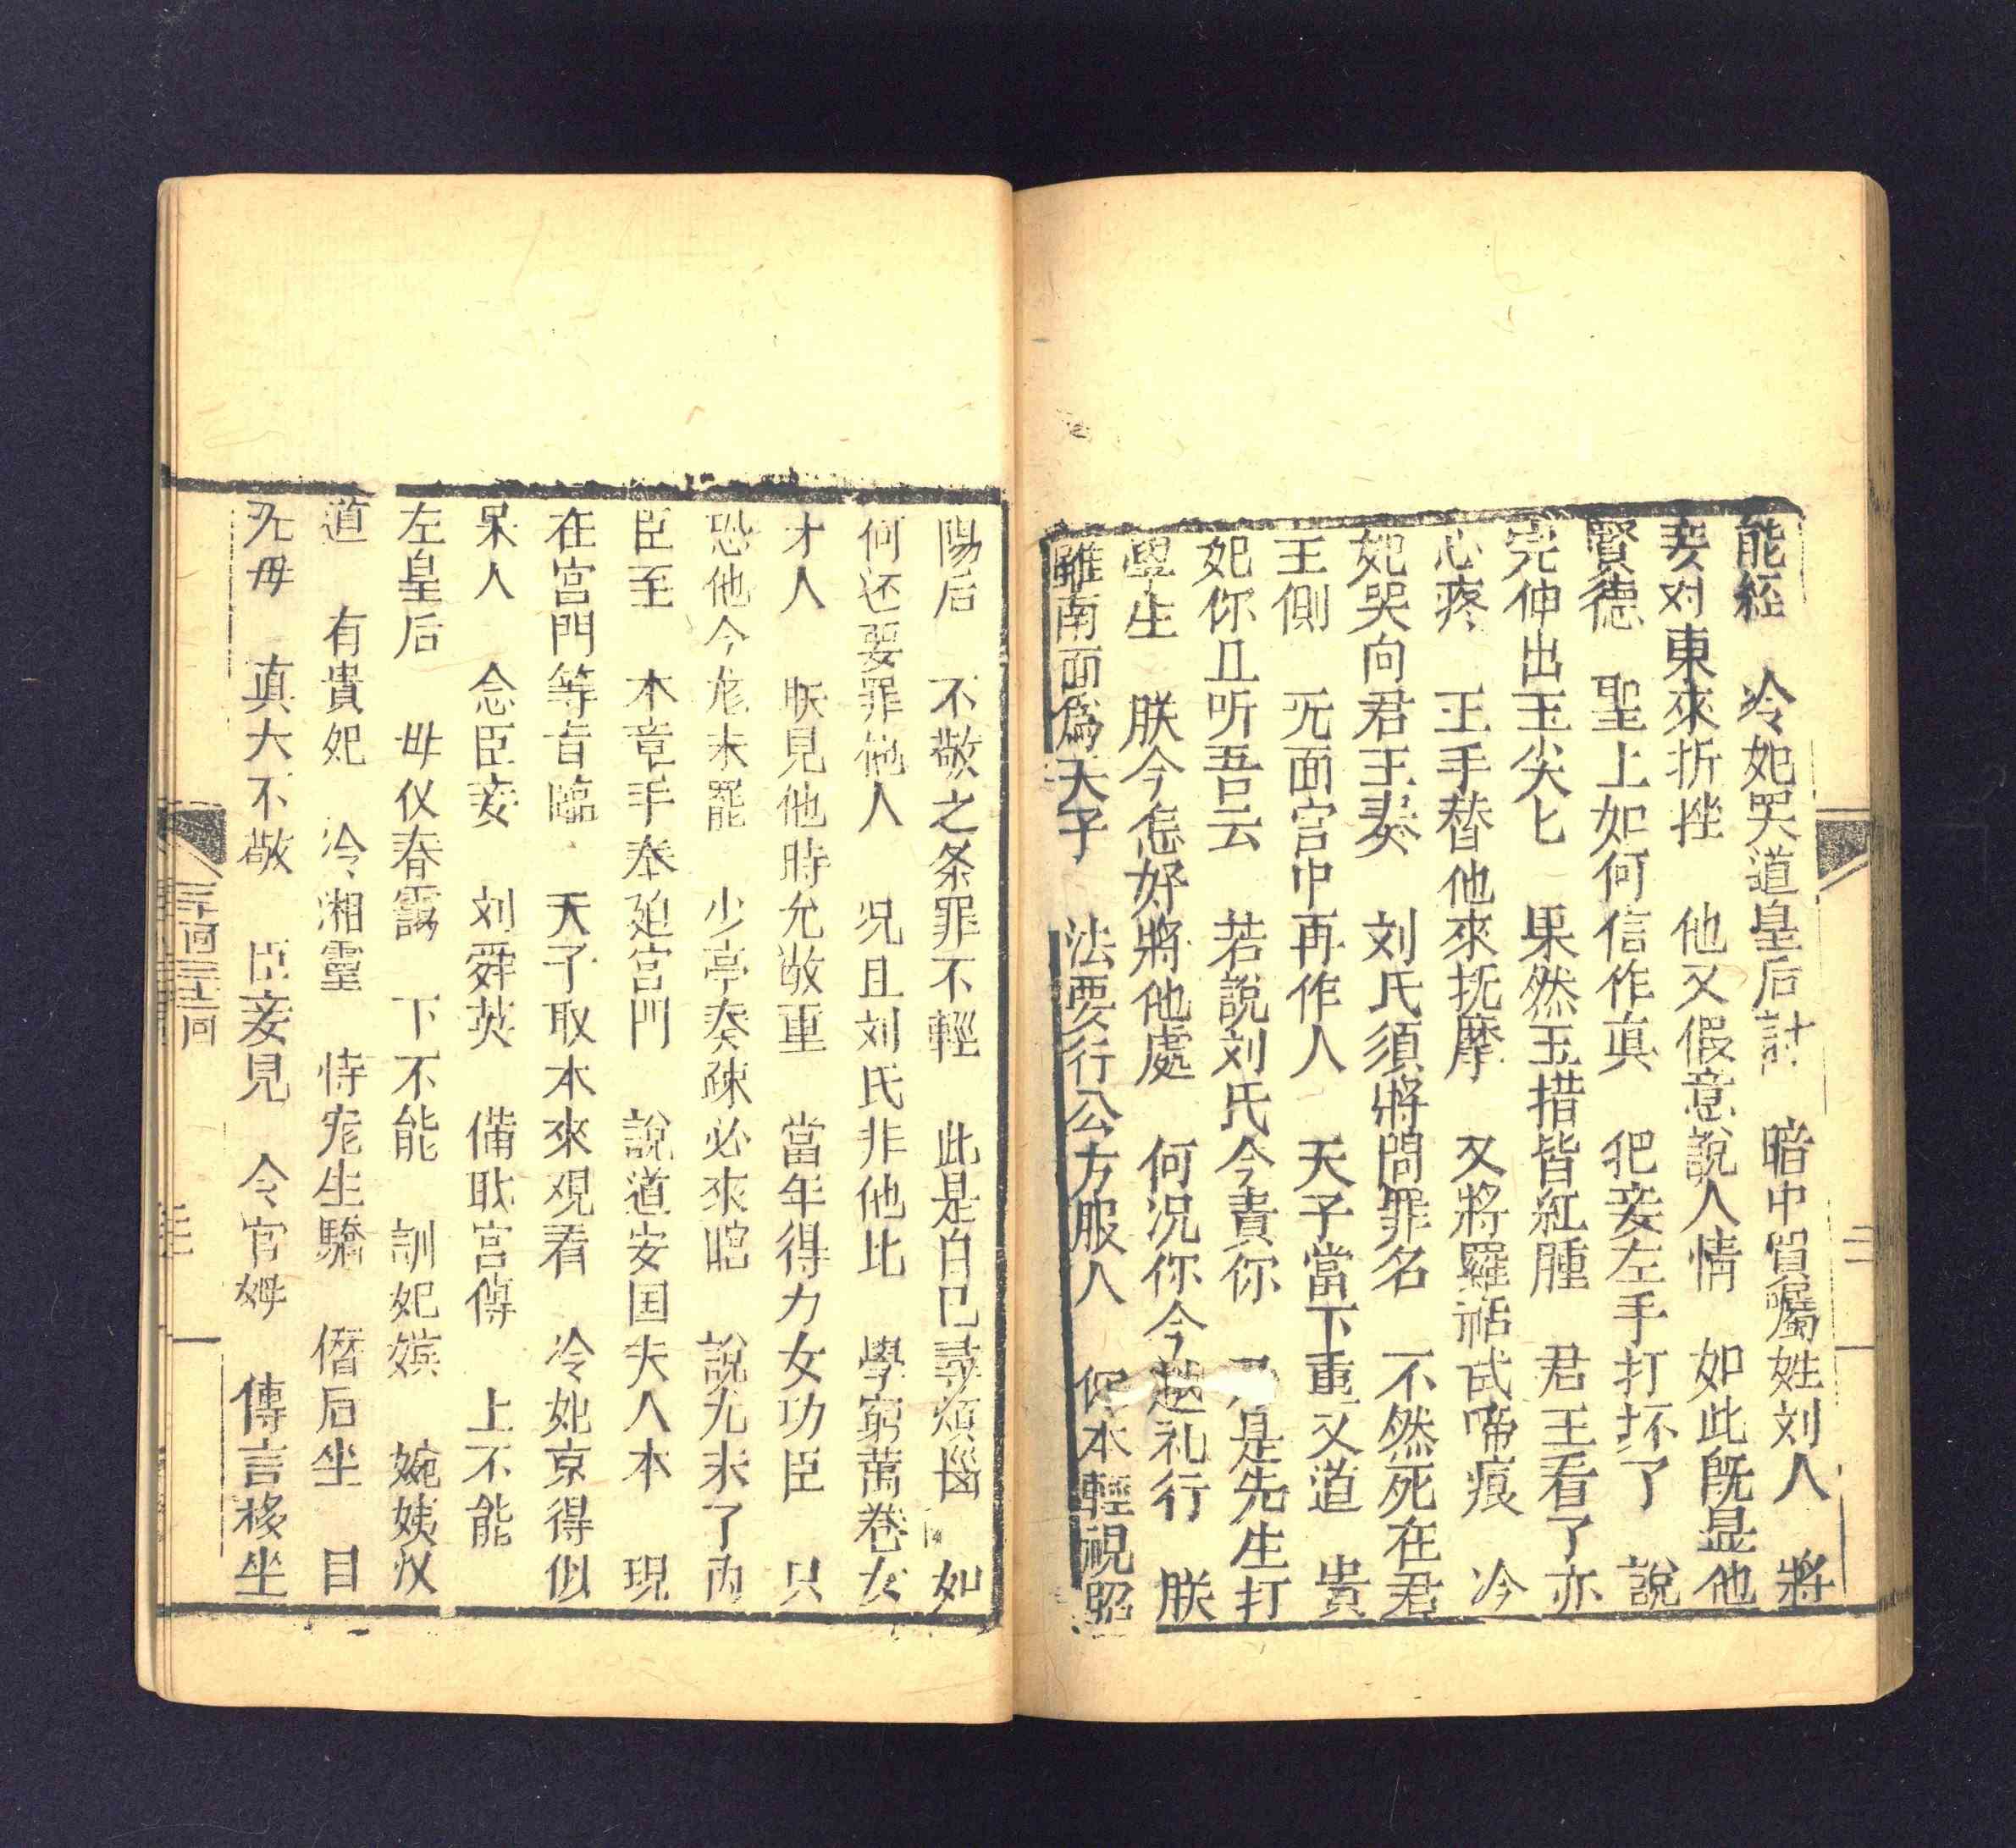 能經　冷妃哭道皇后討　暗中買囑姓刘人　將
妾对東來折挫　他又假意說人情　如此既显他
賢德　聖上如何信作真　把妾左手打坏了　說
完伸出玉尖匕　果然玉措皆紅腫　君王看了亦
心疼　王手替他來抚摩　又將羅袑拭啼痕　冷
妃哭向君王奏　刘氏須將問罪名　不然死在君
王側　旡面宮中再作人　天子當下重又道　貴
妃你且听吾云　若說刘氏今責你　是先生打
學生　朕今怎好將他處　何況你今越礼行　朕
雖南面爲天子　法要行公方服人　你本輕視昭
陽后　不敬之条罪不輕　此是自已尋煩惱　如
何还要罪他人　况且刘氏非他比　學窮萬卷女
才人　朕見他時尤敬重　當年得力女功臣　只
恐他今尨未罷　少亭奏疎必來嗆　說尤未了內
臣至　本章手奉廹宮門　說道安国夫人本　現
在宮門等旨臨　天子取本來观看　冷妃京得似
呆人　念臣妾　刘舜英　備敢宮傳　上不能
左皇后　毋仪春靄　下不能　訓妃嫔　婉姨仪
道　有貴妃　冷湘靈　恃寵生驕　僭后坐　目
旡毋　真大不敬　臣妾見　令官姆　傳言移坐
三十二回